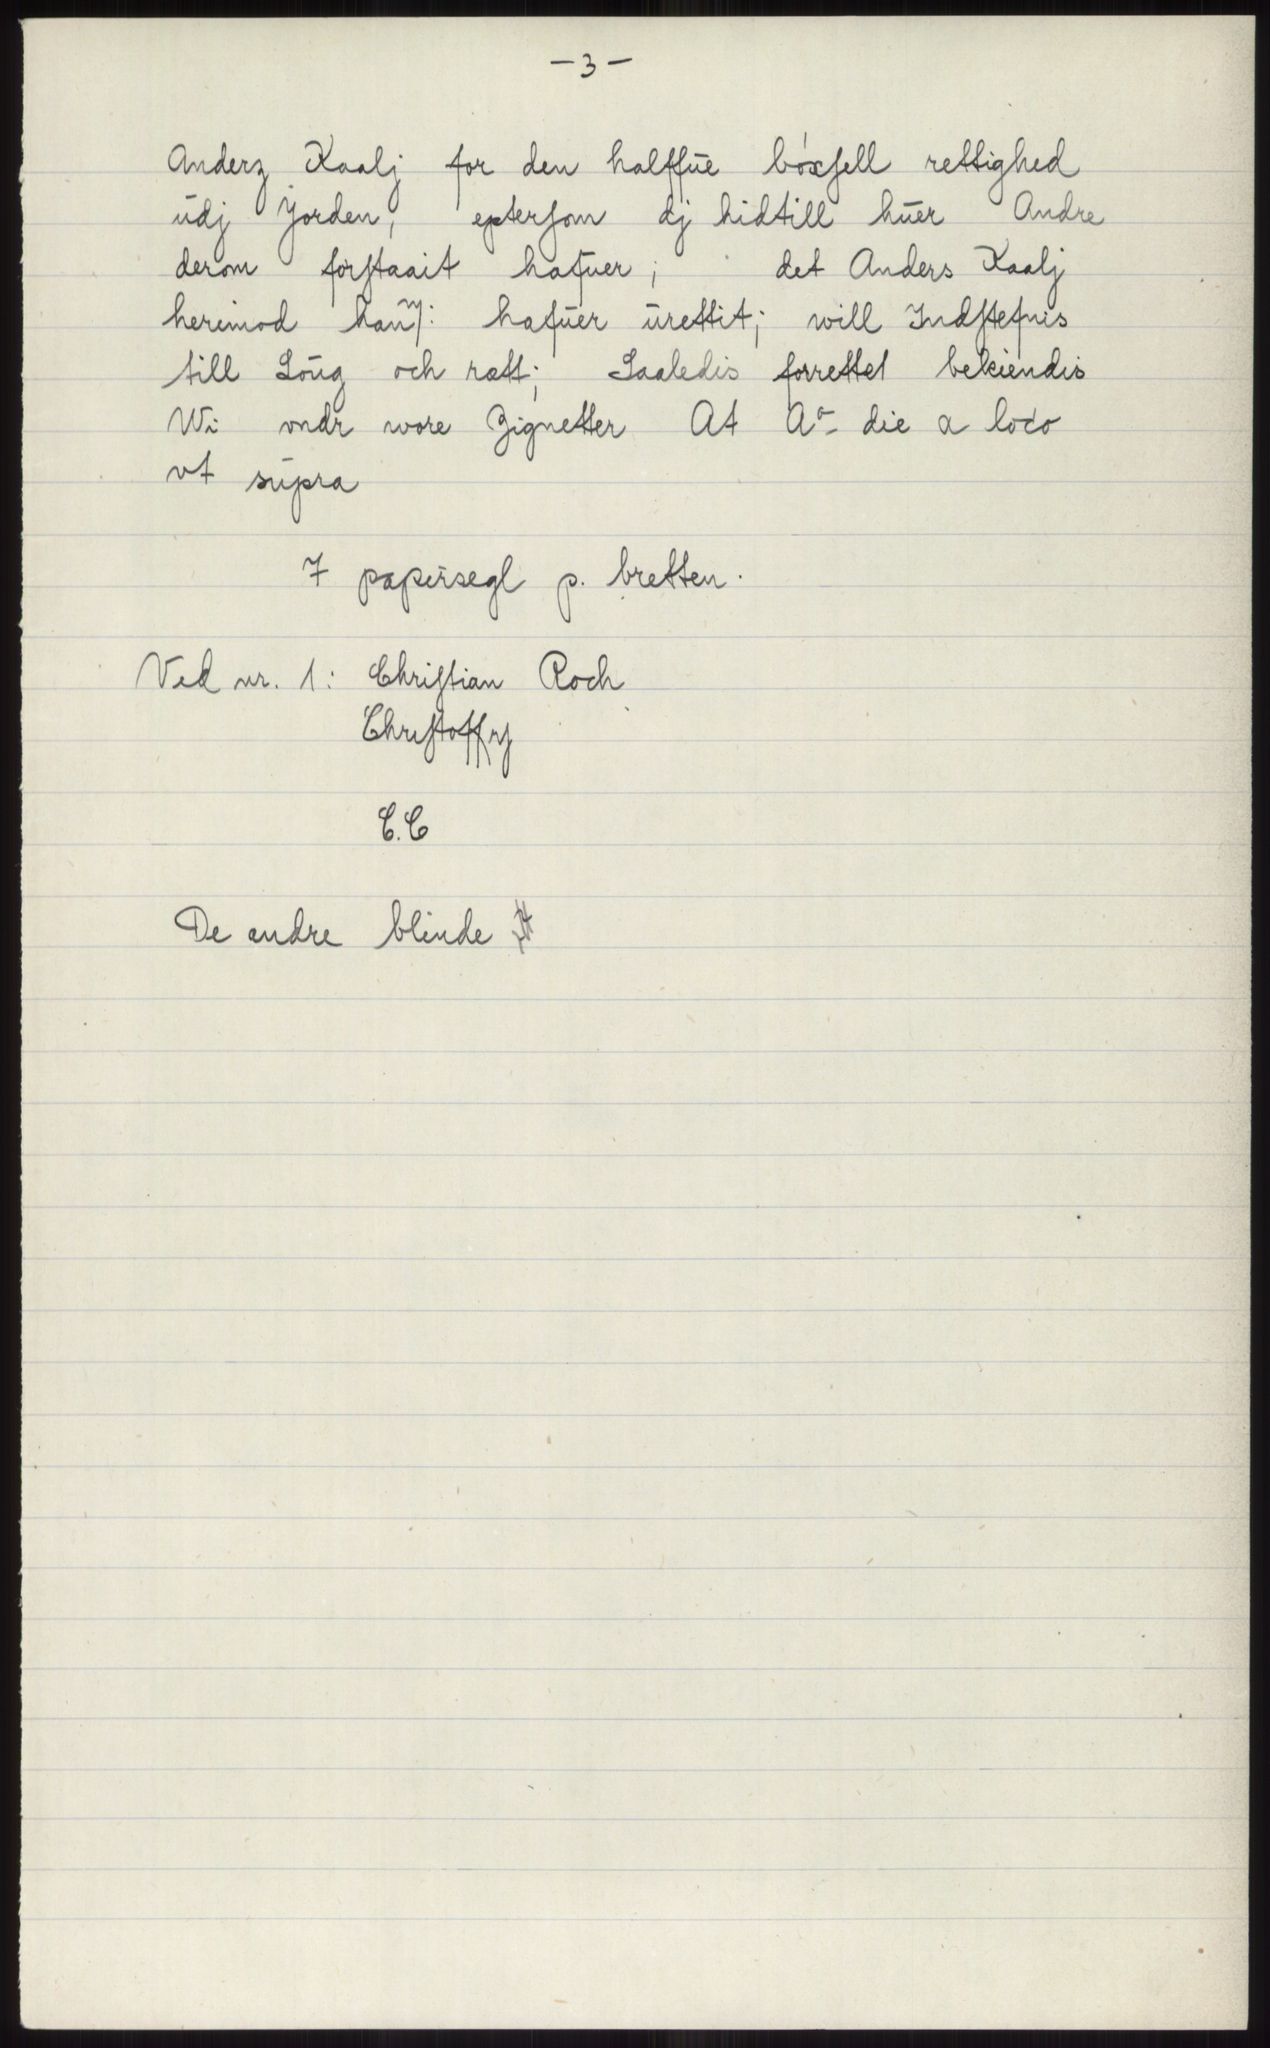 - 3 -
Anderz Kaalj for den halffue bóxſell rettighed
udj Jorden, epterſom dj hidtill huer Andre
derom forſtaait hafuer; det Anders Kaalj
herimod hafuer urettit; will Indſtefnis
till Loug och rætt; Saaledis forrettet bekiendis
Wi vndr wore Zignetter At Aº die & loco
vt supra
7 papirsegl p. bretten.
Ved nr. 1: Chriſtian Roch
C.C
De andre blinde